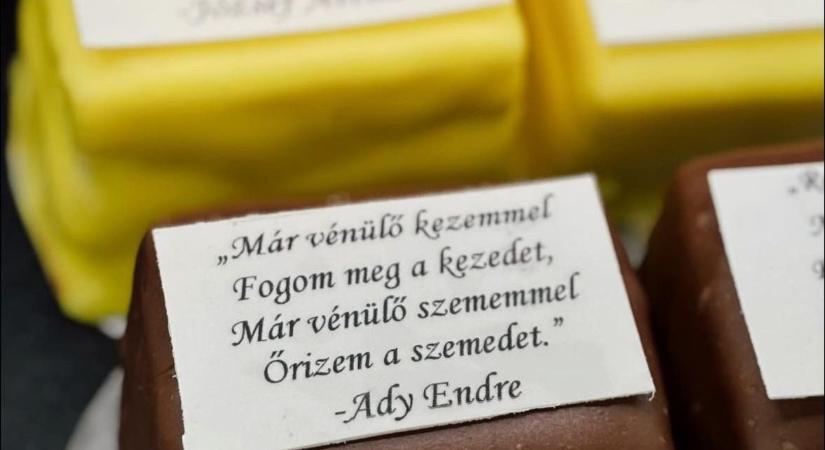 -József Attila
„Már vénülő kezemmel
Fogom meg a kezedet,
Már vénülő szememmel
Őrizem a szemedet.”
-Ady Endre